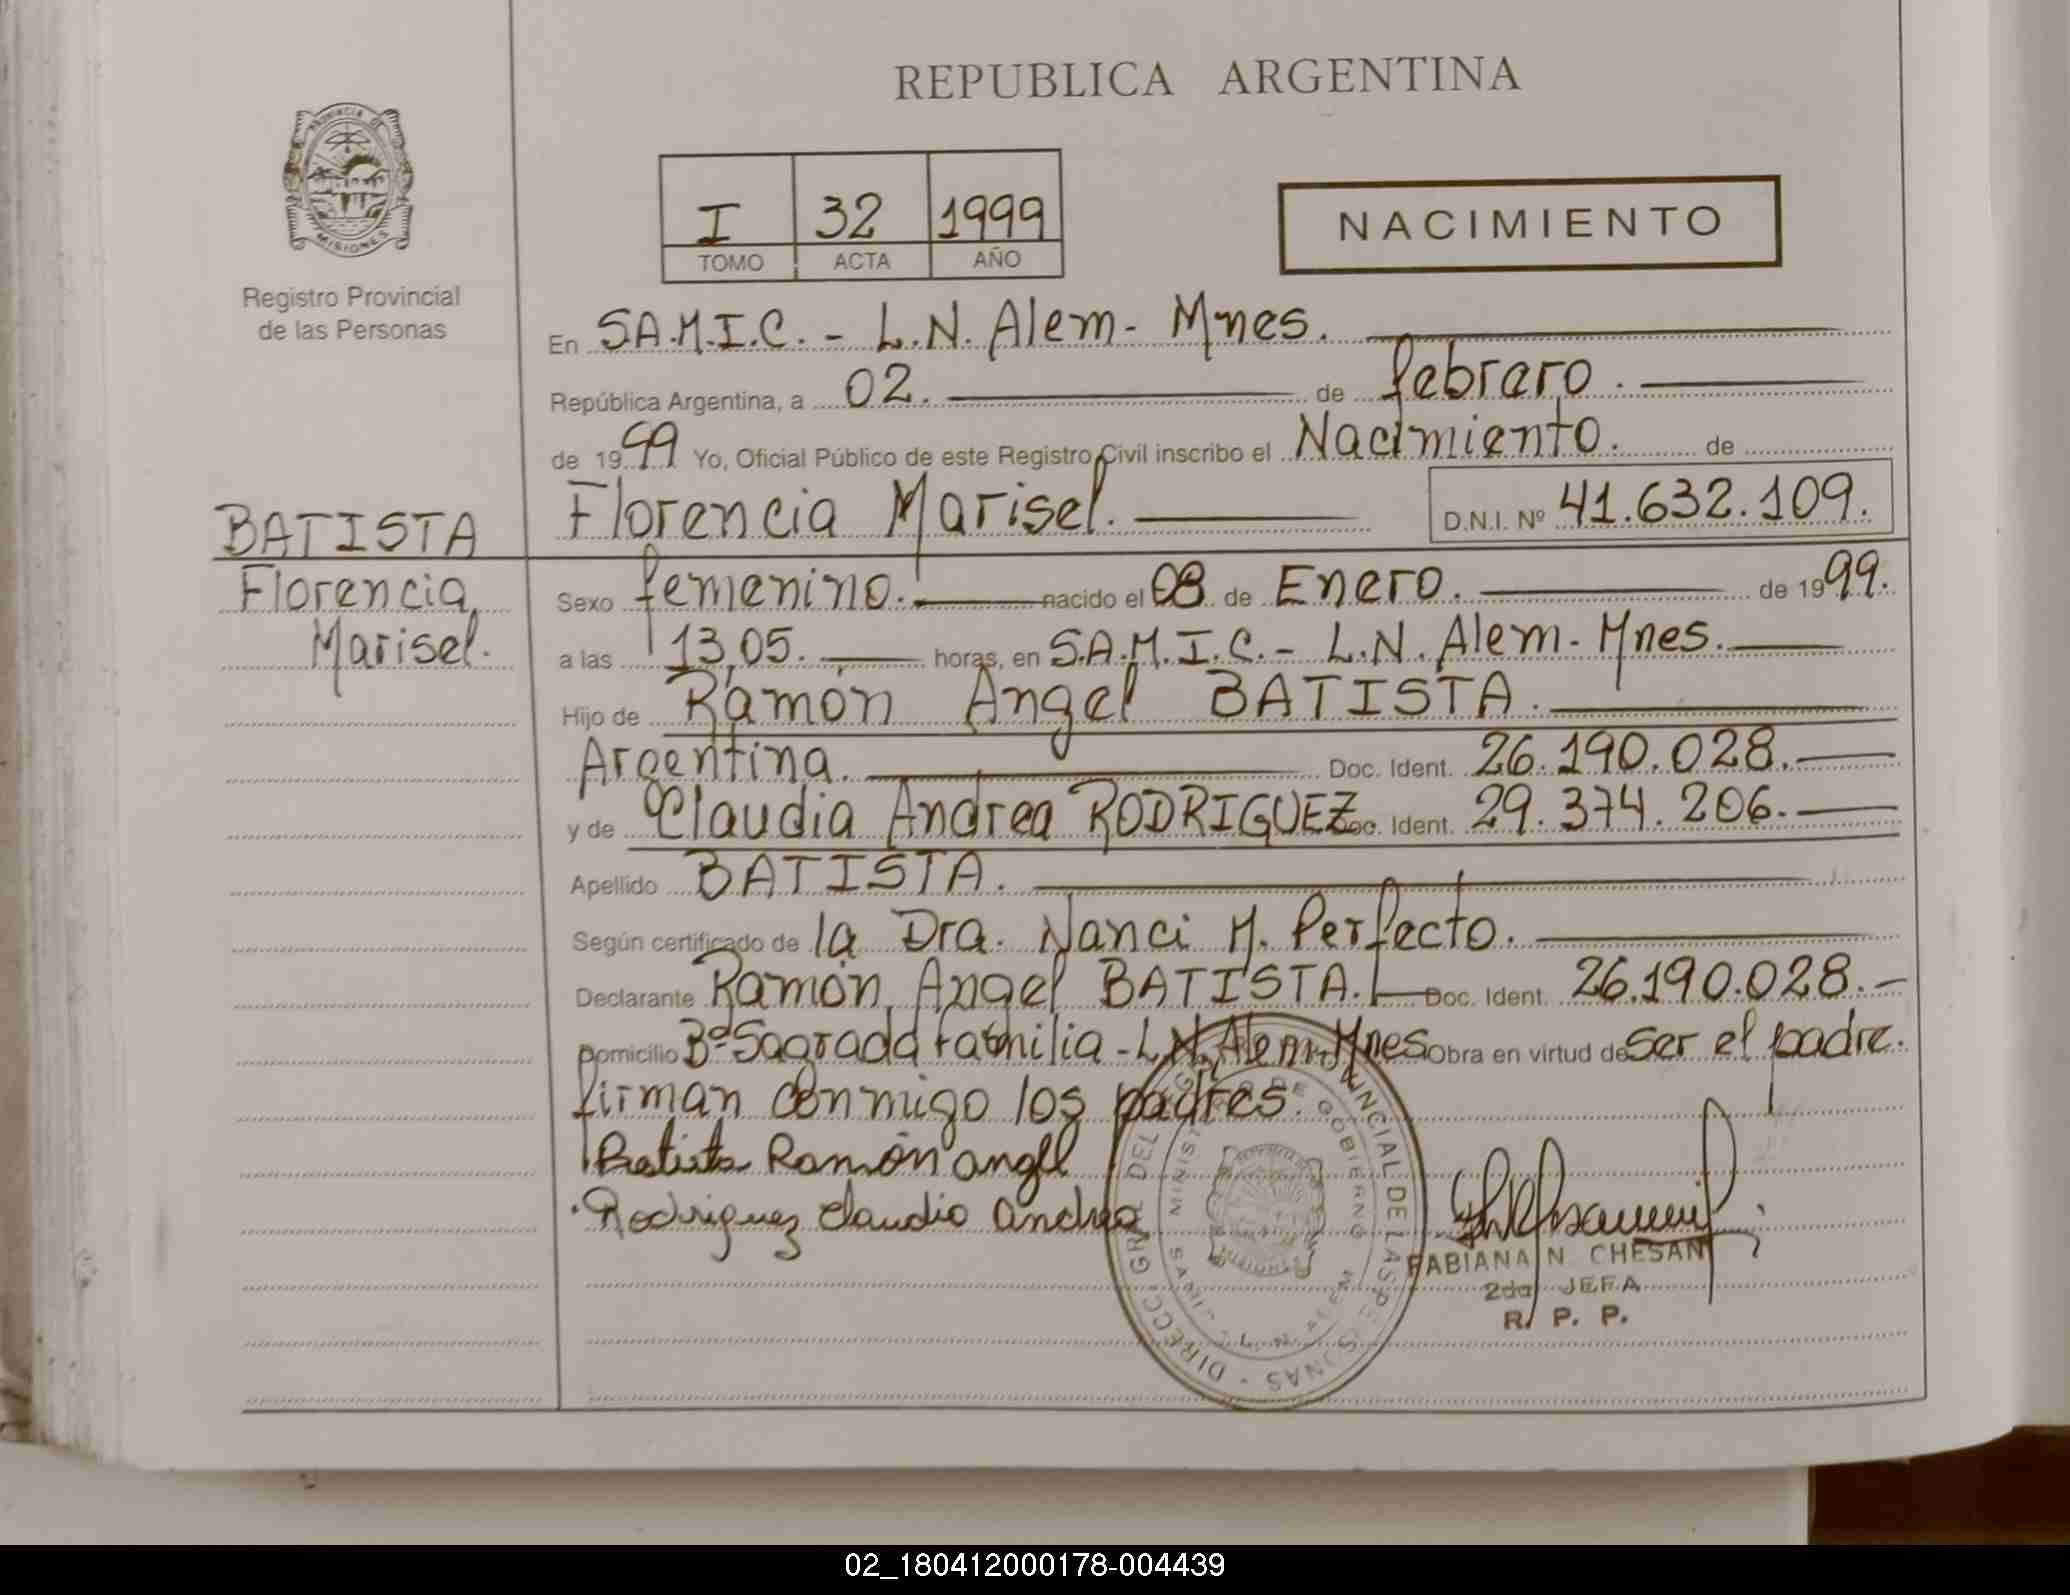 REPUBLICA ARGENTINA
PROVINCIA DE
MISIONES
Registro Provincial
de las Personas
I 32 1999
TOMO ACTA AÑO
NACIMIENTO
En S.A.M.I.C. - L.N. Alem - Mnes.
República Argentina, a 02. de febrero.
de 1999 Yo, Oficial Público de este Registro Civil inscribo el Nacimiento. de
Florencia Marisel. D.N.I. Nº 41.632.109.
BATISTA
Florencia
Marisel.
Sexo femenino. nacido el 08 de Enero. de 1999.
a las 13,05. horas, en S.A.M.I.C. - L.N. Alem - Mnes.
Hijo de Ramón Angel BATISTA.
Argentina. Doc. Ident. 26.190.028.
y de Claudia Andrea RODRIGUEZ Doc. Ident. 29.374.206.
Apellido BATISTA.
Según certificado de la Dra. Nanci M. Perfecto.
Declarante Ramón Angel BATISTA. Doc. Ident. 26.190.028.-
Domicilio Bº Sagrada familia - L.N. Alem - Mnes Obra en virtud de ser el padre.
firman conmigo los padres.
Batista Ramón angel
Rodriguez Claudia andrea
FABIANA N. CHESANI
2da JEFA
R. P. P.
DIRECC. GRAL DEL PROVINCIAL DE LAS PERSONAS
MINIST DE GOBIERNO
L. N. ALEM
02_180412000178-004439